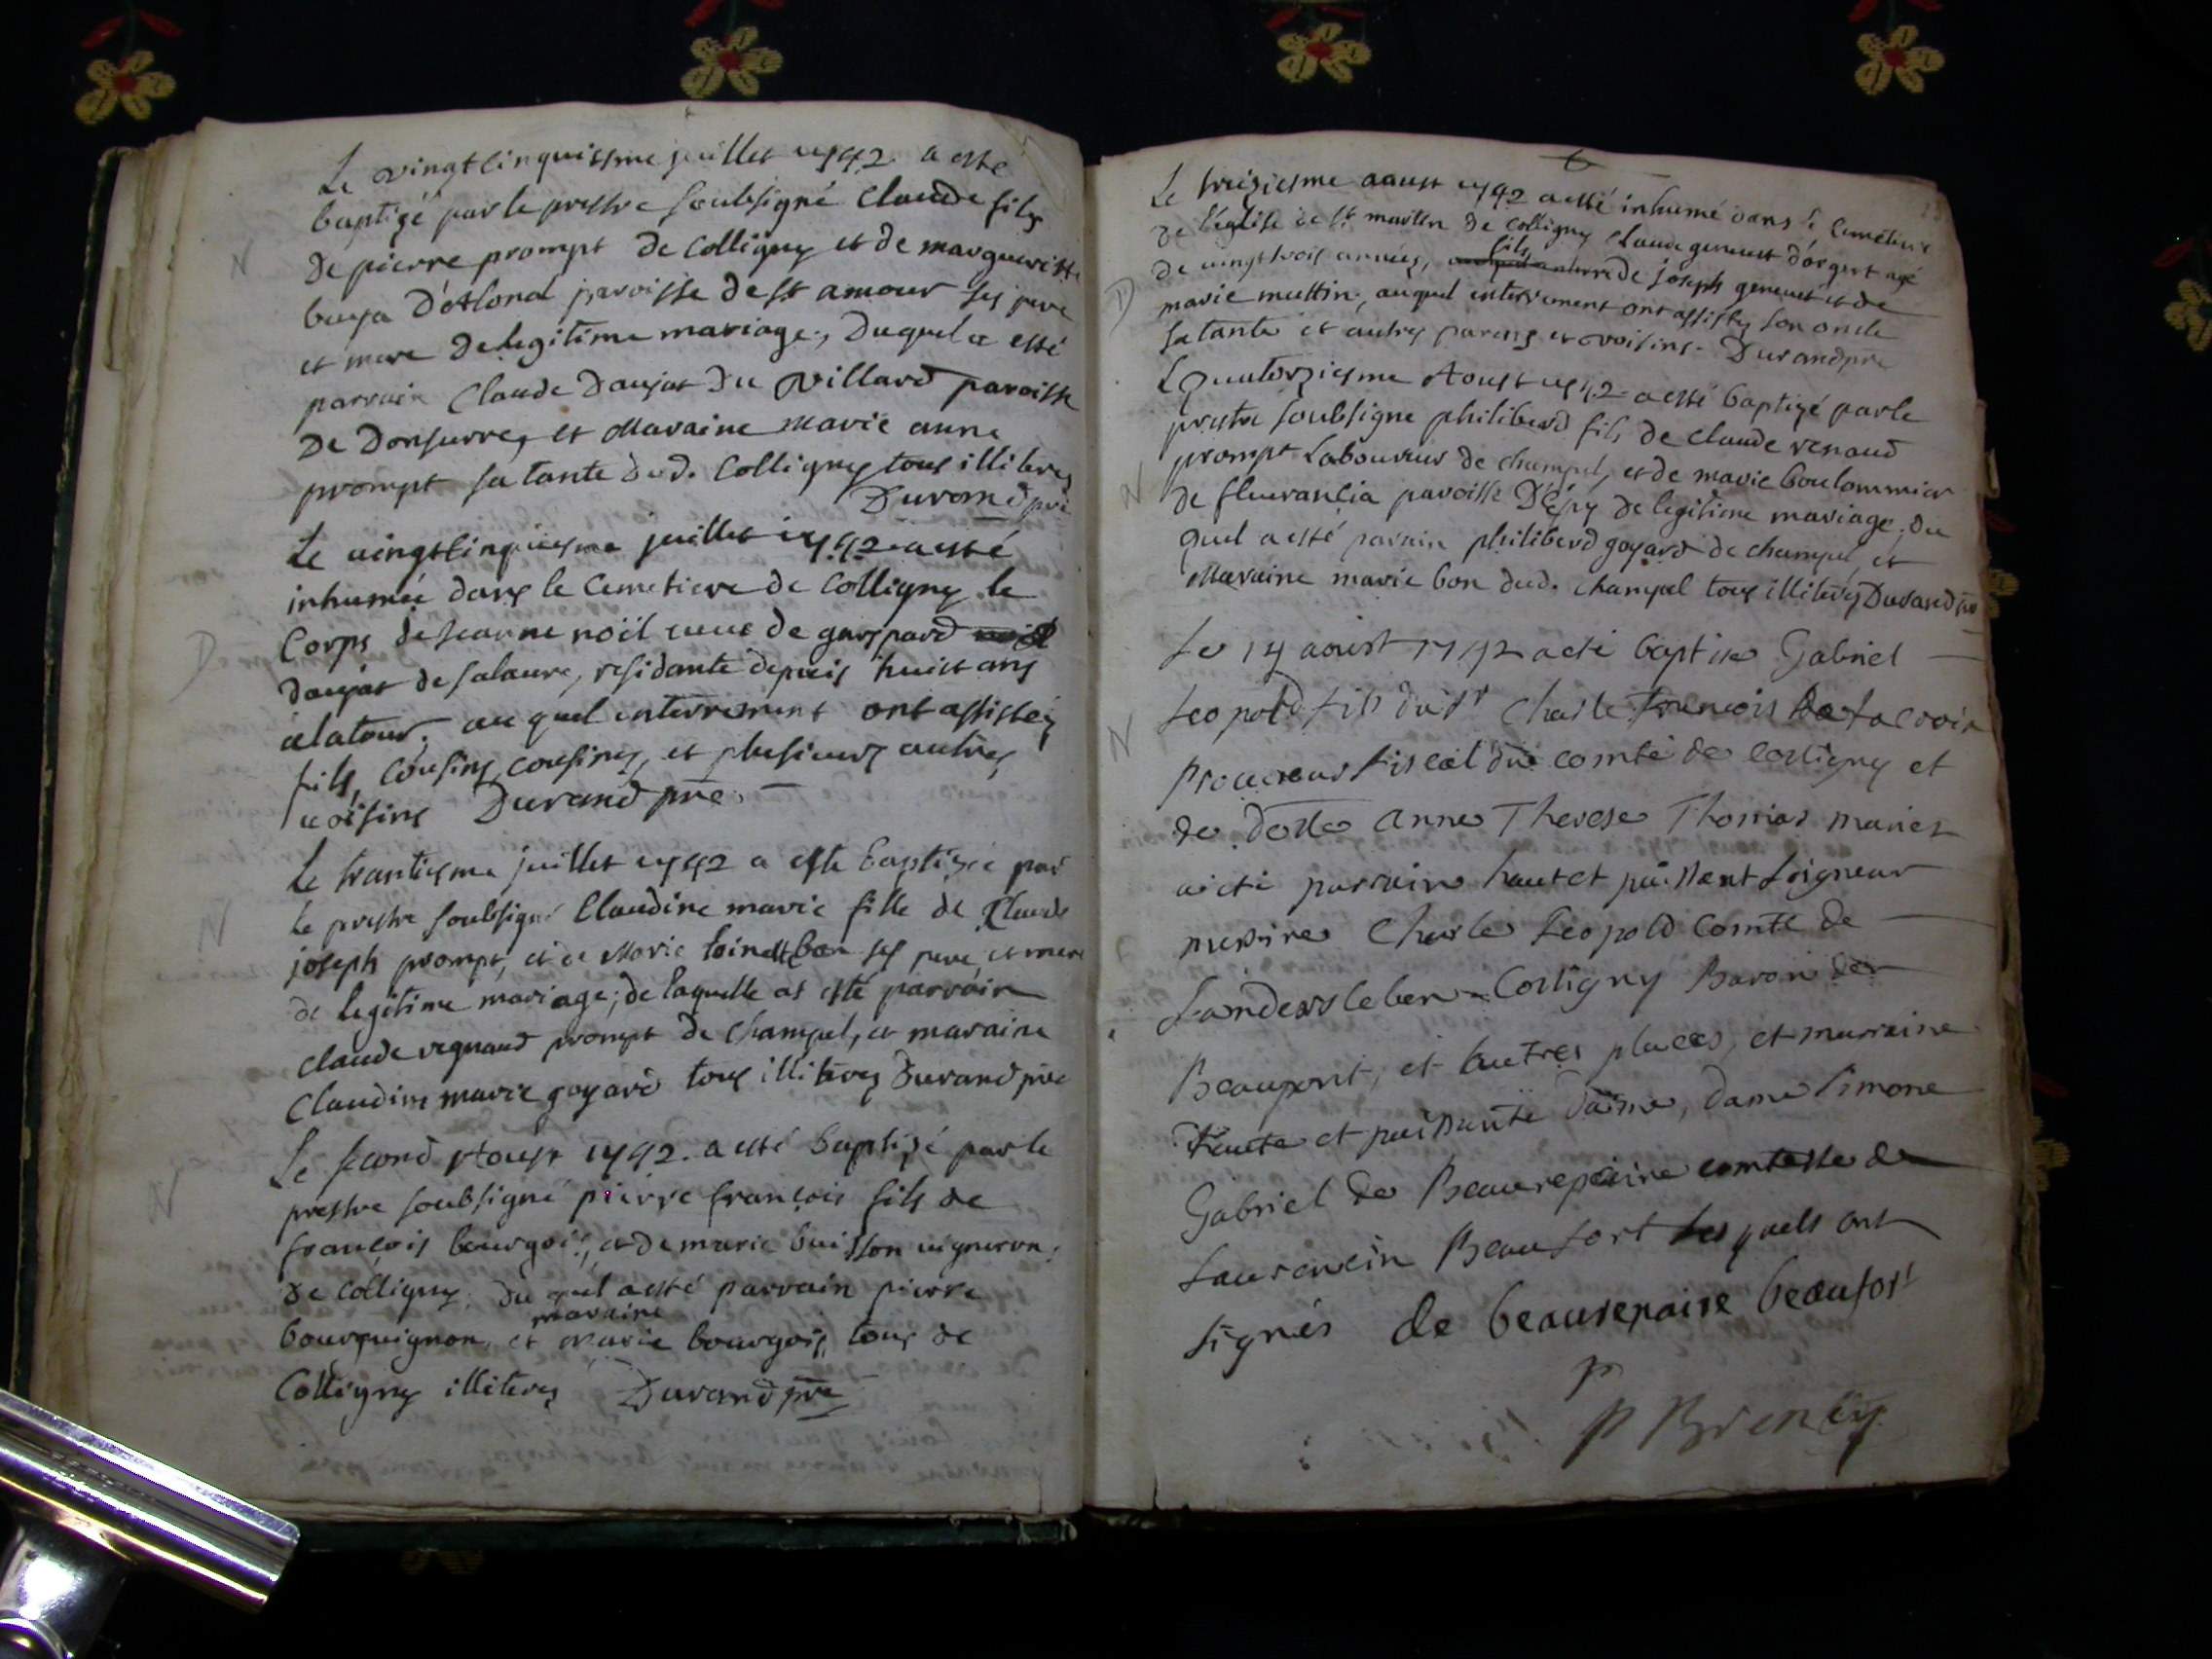 Le vingtcinquiesme juillet 1742 a esté
baptizé par le prestre soubsigné Claude fils
N
de pierre prompt de Colligny et de margueritte
buya d'Allonal paroisse de st amour ses pere
et mere de legitime mariage, duquel a esté
parrain Claude Daujat du Villard paroisse
De Donsurre, et Maraine marie anne
prompt sa tante dud. Colligny tous illiteres
Durand pre
Le vingtcinquiesme juillet 1742 a esté
inhumée dans le Cemetiere de Colligny le
D
Corps de jeanne noël veuve de gaspard
daujat de salavre, residante depuis huict ans
a latour, au quel enterrement ont assistez
fils, cousins, cousines, et plusieurs autres
voisins Durand pre.
Le trantiesme juillet 1742 a esté baptizée par
N
le prestre soubsigné Claudine marie fille de Claude
joseph prompt, et de Marie bon ses pere et mere
de legitime mariage; de laquelle at esté parrain
claude regnaud prompt de Champel, et maraine
Claudine marie goyard tous illiteres Durand pre
Le second Aoust 1742. a esté baptizé par le
N
prestre soubsigné pierre françois fils de
françois bourgois, et de marie buisson vigneron
de Colligny. du quel a esté parrain pierre
maraine
bourguignon, et marie bourgois, tous de
Colligny illiteres Durand pre
Le treiziesme aoust 1742 a esté inhumé dans le Cemétiere
de l'église de st martin de Colligny Claude genevet d'orgent agé
fils
D
de vingt trois années, de joseph genevet et de
marie muttin, auquel enterrement ont assistez son oncle
sa tante et autres parens et voisins. Durand pre
Le quatorziesme Aoust 1742 a esté baptizé par le
prestre soubsigne philiberd fils de Claude renaud
N
prompt Laboureur de champel, et de marie boulommier
de fleurancia paroisse D'épy de legitime mariage, du
quel a esté parain philiberd goyard de champel, et
Maraine marie bon dud. champel tous illiteres Durand pre
Le 14 aoust 1742 a eté baptise Gabriel
Leopold fils du sr Charle François De Lacroix
N
Procureur Fiscal du comté de Coligny et
de Delle Anne Therese Thomas maries
a eté parrain haut et puissant Seigneur
messire Charle Leopold Comte de
Sandersleben Coligny Baron de
Beaupont, et autres places, et marraine
haute et puissante dame, dame Simone
Gabriel de Beaurepaire comtesse de
Laurencin Beaufort Les quels ont
signés de beaurepaire beaufort
P